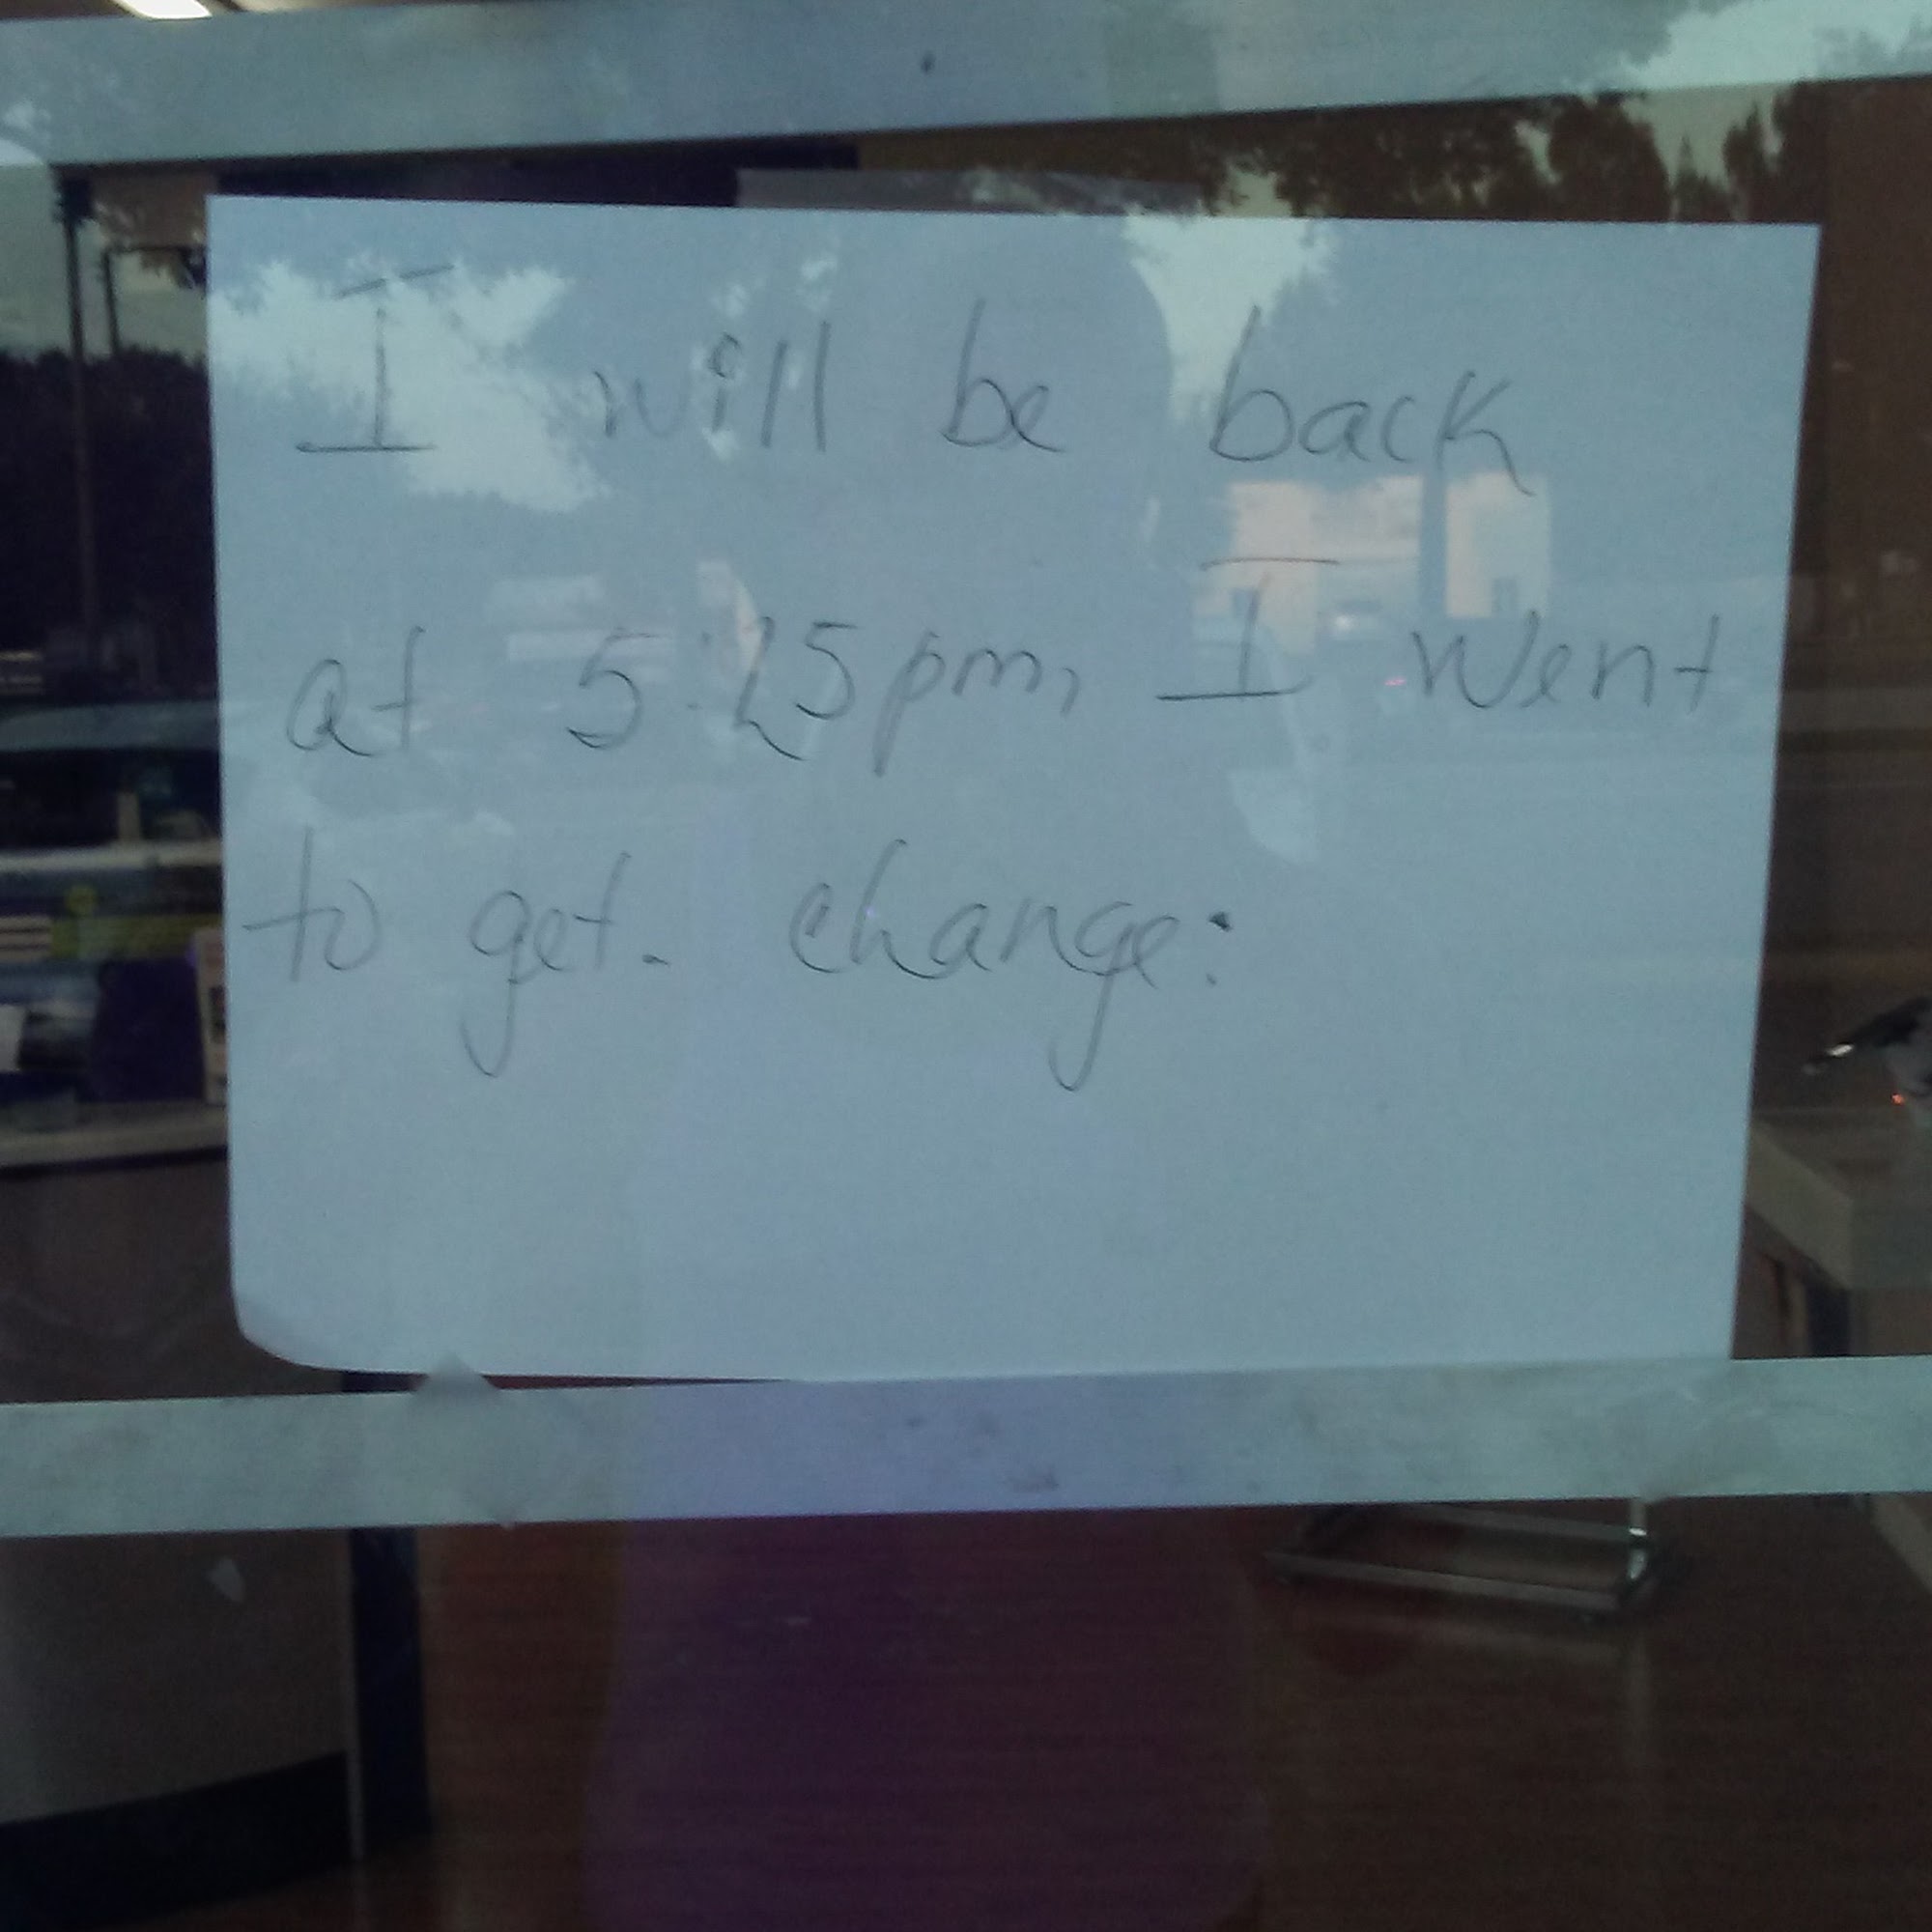 I will be back
at 5:25pm, I went
to get. change: